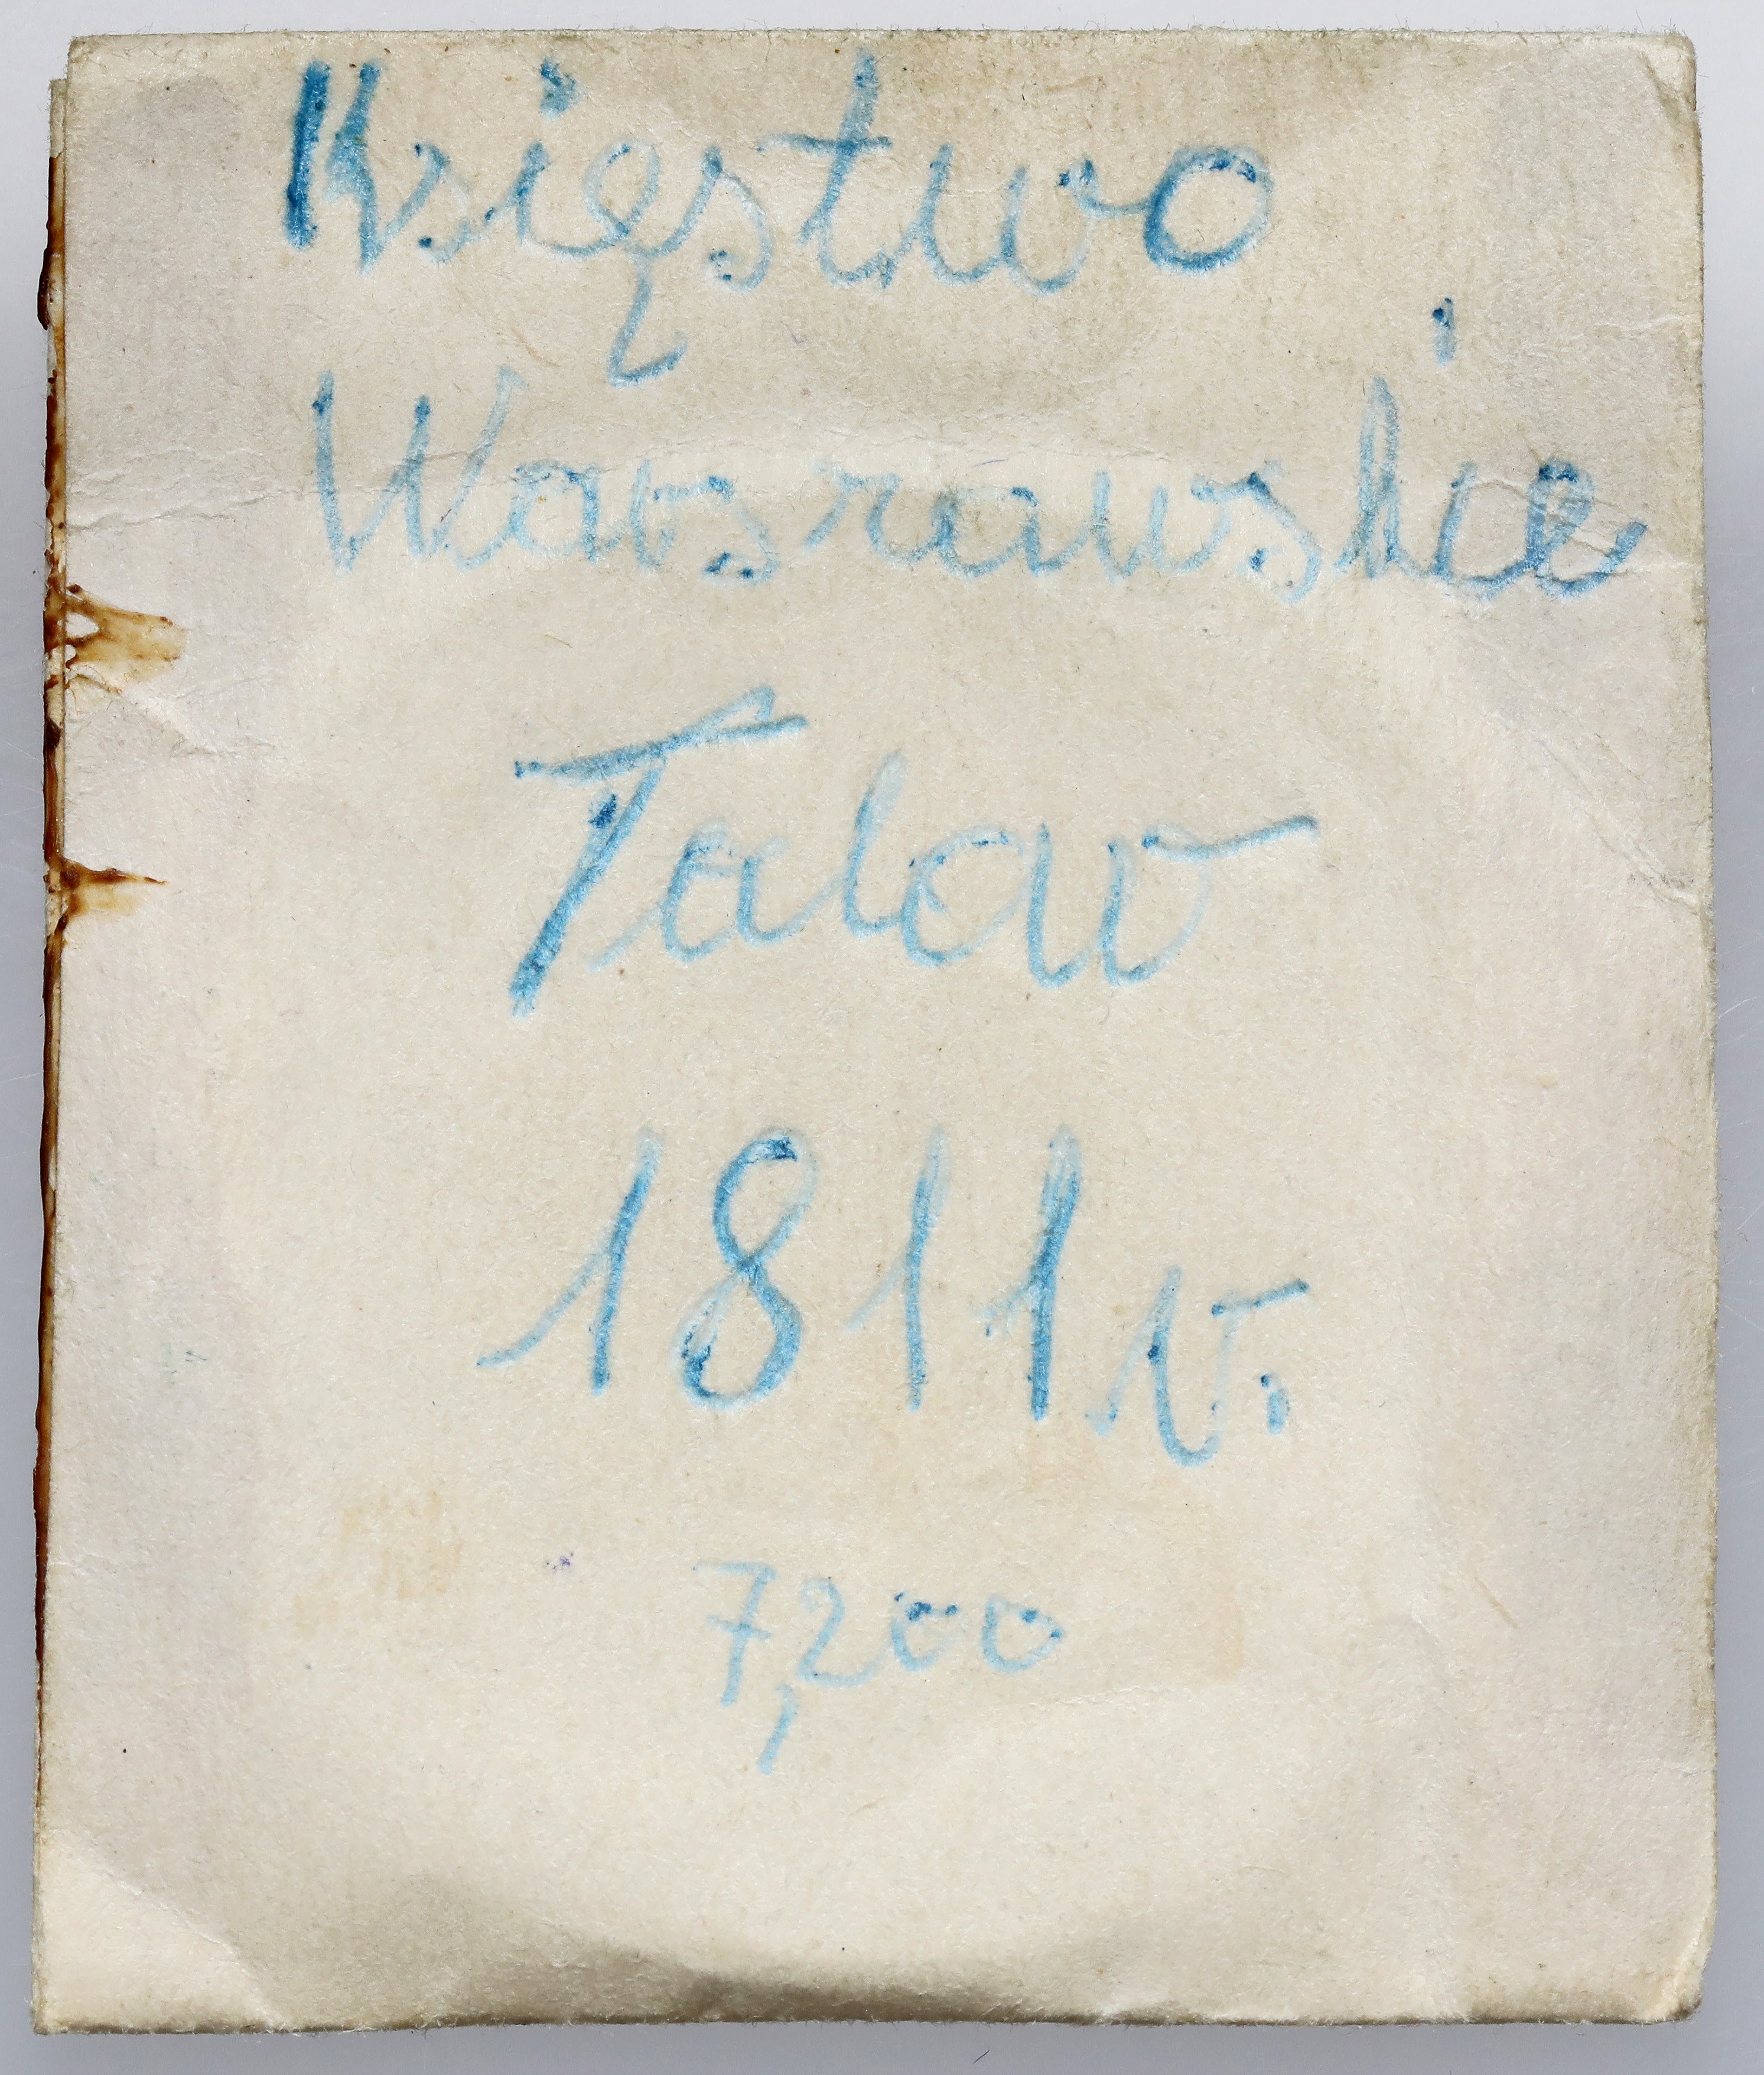 Księstwo
Warszawskie
Talar
1811 r.
7,200